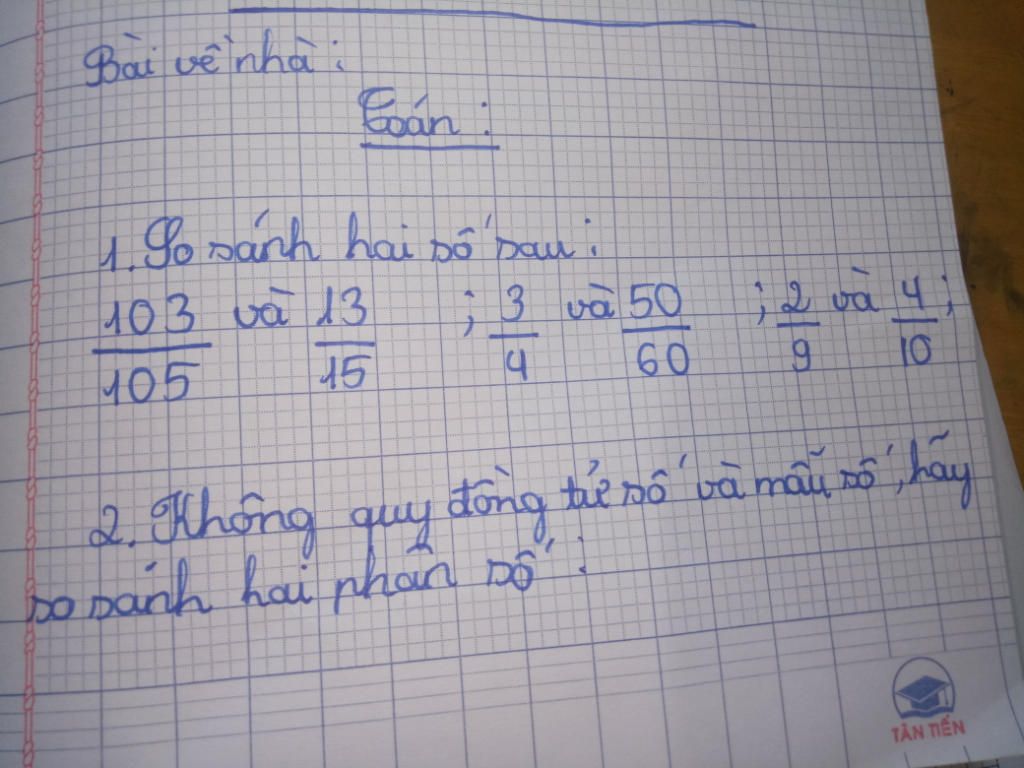 Bài về nhà :
Toán :
1. So sánh hai số sau :
103/105 và 13/15 ; 3/4 và 50/60 ; 2/9 và 4/10 ;
2. Không quy đồng tử số và mẫu số, hãy
so sánh hai phân số :
TÂN TIẾN